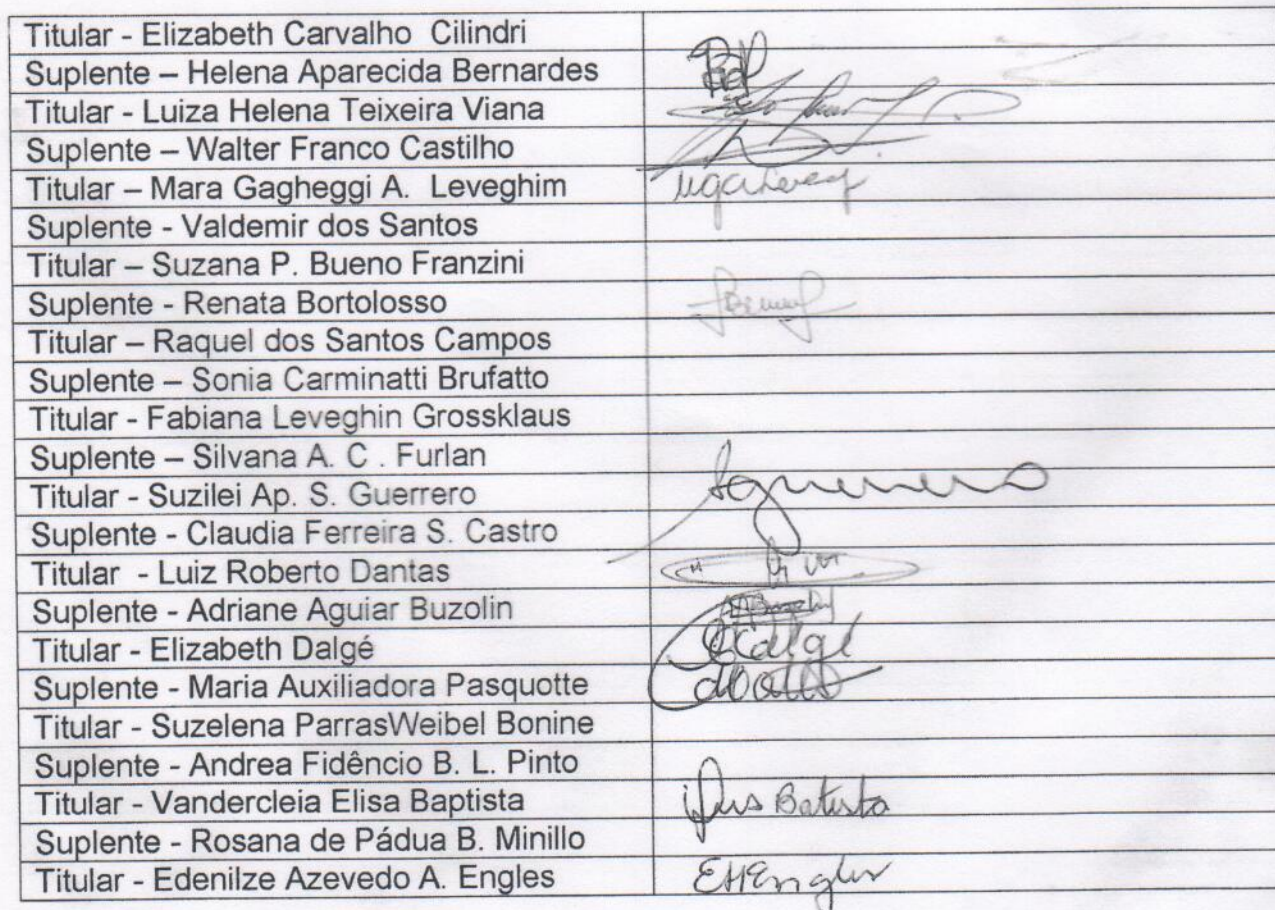 Titular - Elizabeth Carvalho Cilindri
Suplente – Helena Aparecida Bernardes
Titular - Luiza Helena Teixeira Viana
Suplente – Walter Franco Castilho
Titular – Mara Gagheggi A. Leveghim
Suplente - Valdemir dos Santos
Titular – Suzana P. Bueno Franzini
Suplente - Renata Bortolosso
Titular – Raquel dos Santos Campos
Suplente – Sonia Carminatti Brufatto
Titular - Fabiana Leveghin Grossklaus
Suplente – Silvana A. C . Furlan
Titular - Suzilei Ap. S. Guerrero
Suplente - Claudia Ferreira S. Castro
Titular - Luiz Roberto Dantas
Suplente - Adriane Aguiar Buzolin
Titular - Elizabeth Dalgé
Suplente - Maria Auxiliadora Pasquotte
Titular - Suzelena ParrasWeibel Bonine
Suplente - Andrea Fidêncio B. L. Pinto
Titular - Vandercleia Elisa Baptista Batista
Suplente - Rosana de Pádua B. Minillo
Titular - Edenilze Azevedo A. Engles